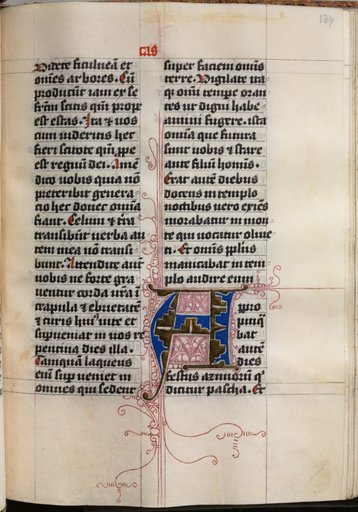 134
cas
Videte ficulneā et
om̄es arbores. Cū
producūt iam ex se
fructū scitis qm̄ prope
est estas. Ita et uos
cum uideritis hec
fieri scitote qm̄ ꝓpe
est regnū dei. Amē
dico uobis quia nō
preteribit genera
cio hec donec omīa
fiant. Celum et t̄ra
transibūt uerba au
tem mea nō transi
bunt. Attendite autē
uobis ne forte gra
uentur corda ur̄a ī
crapula et ebrietate
et curis huiꝰ uite et
supueniat in uos re
pentina dies illa.
Tamquam laqueus
enī superueniet in
omnes qui sedent
super faciem omīs
terre. Vigilate ita
qꝫ omī tempe oran
tes ut digni habe
amini fugere ista
omīa que futura
sunt uobis et stare
ante filiū homīs.
Erat autē diebus
docens in templo
noctibus uero exiēs
morabatur in mon
te qui uocatur oliue
ti. Et omīs pplūs
manicabat in tem
plo audire eum
Appro
pinq̄
bat
autē
dies
festus azimorū q̄
dicitur pascha. Et